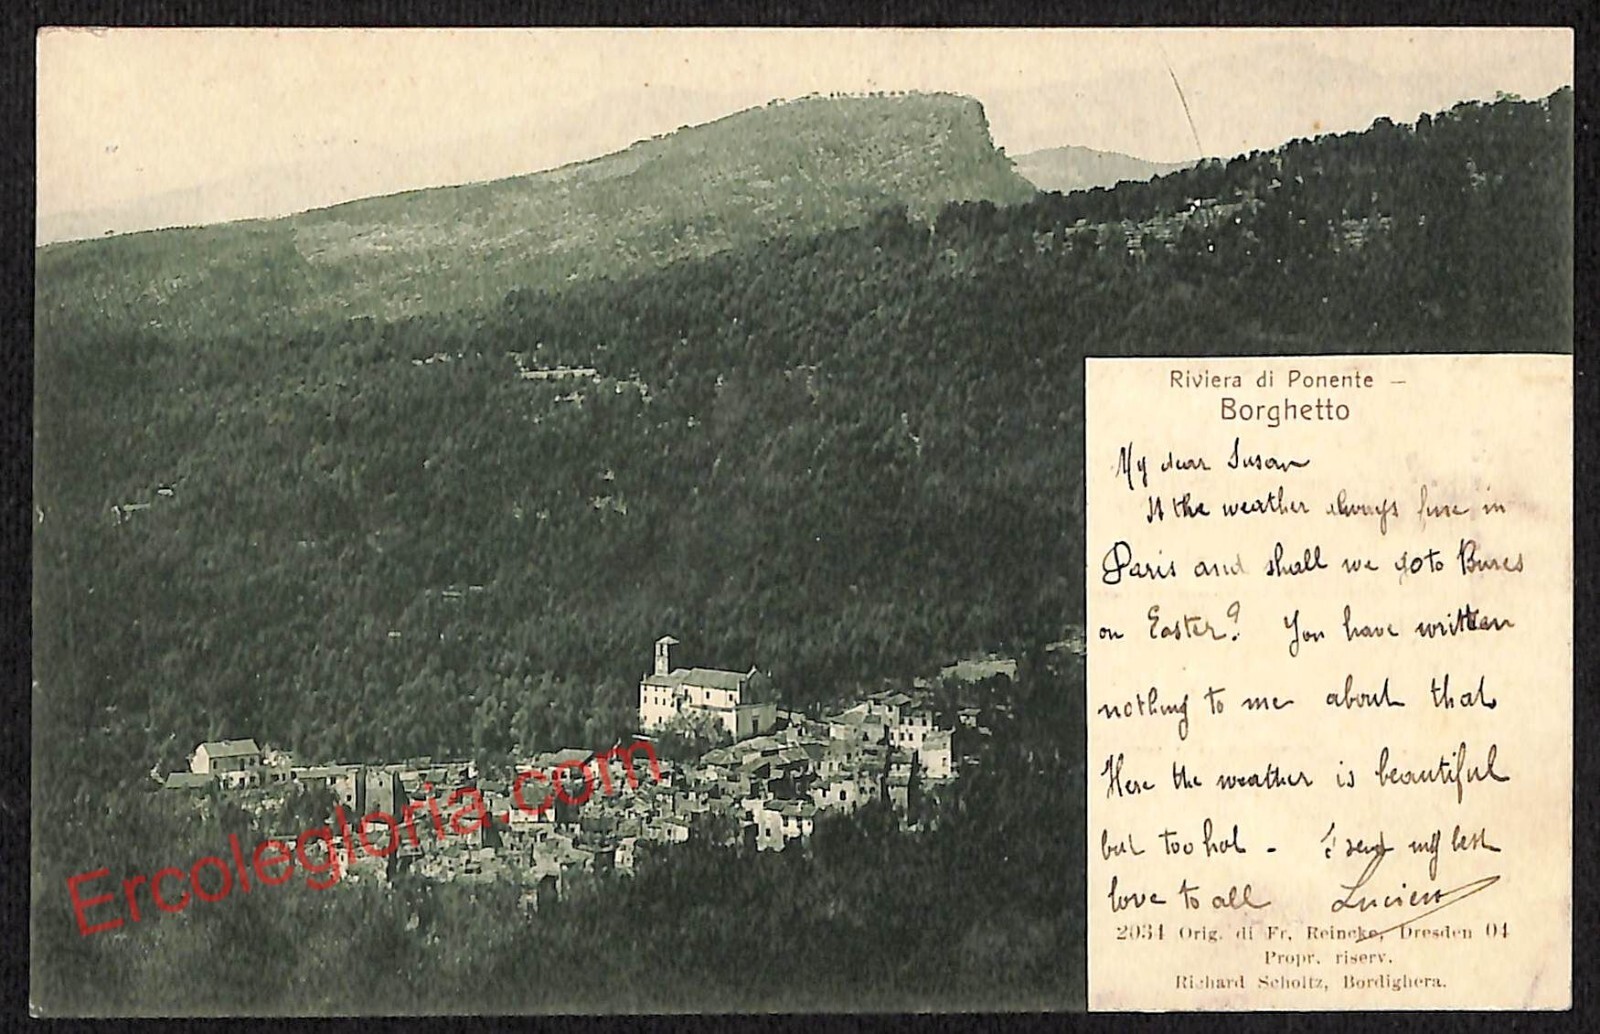 Riviera di Ponente –
Borghetto
My dear Susan
Is the weather always fine in
Paris and shall we go to Bures
on Easter? You have written
nothing to me about that
Here the weather is beautiful
but too hot - I send my best
love to all Lucien
2034 Orig. di Fr. Reineke, Dresden 04
Propr. riserv.
Richard Scholtz, Bordighera.
Ercolegloria.com